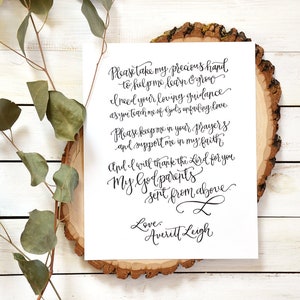 Please take my precious hand
to help me learn & grow
I need your loving guidance
as you teach me of God's unfailing love
Please keep me in your prayers
and support me in my faith
And I will thank the Lord for you
My Godparents
sent from above
Love,
Averitt Leigh